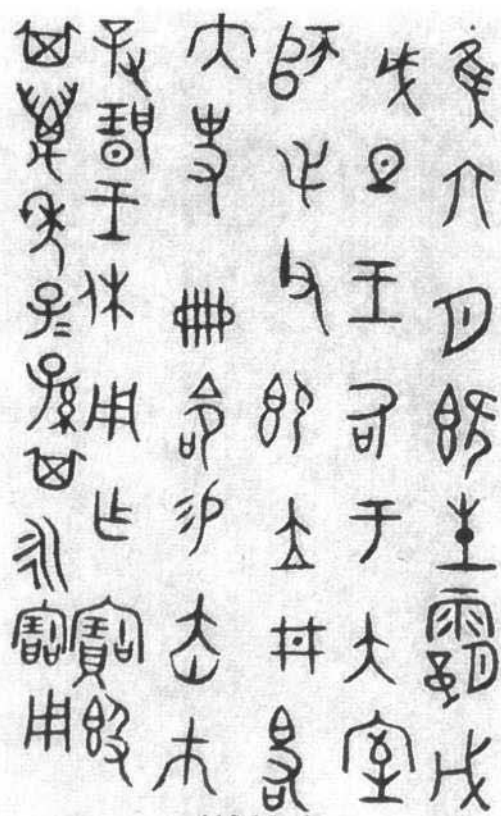 隹六月既生霸戊
戌旦王各于大室
師毛父即立井白右
大史冊命易赤巿
對揚王休用乍寶簋
其萬年子=孫其永寶用